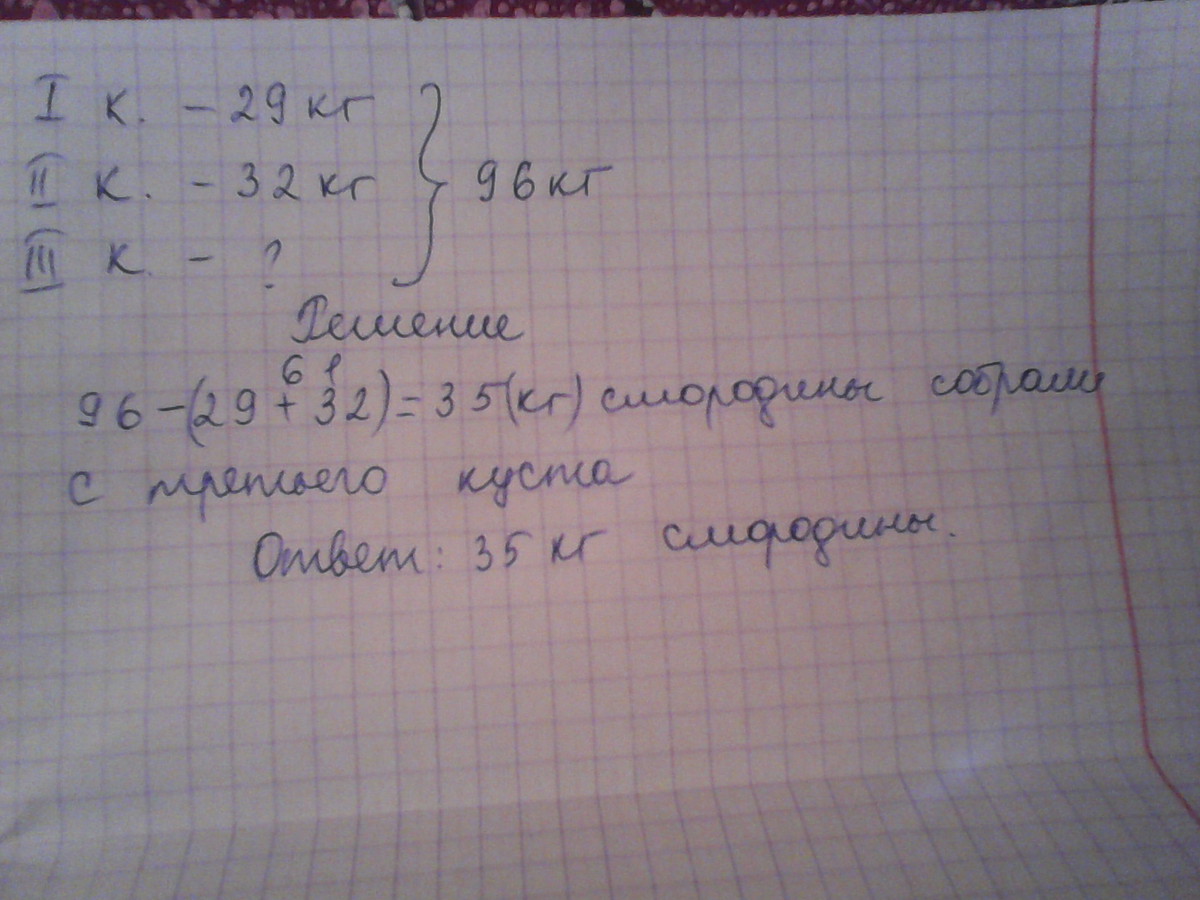 I к. - 29 кг
II к. - 32 кг
III к. - ?
96 кг
Решение
61
96-(29+32)=35(кг) смородины собрали
с третьего куста
Ответ: 35 кг смородины.